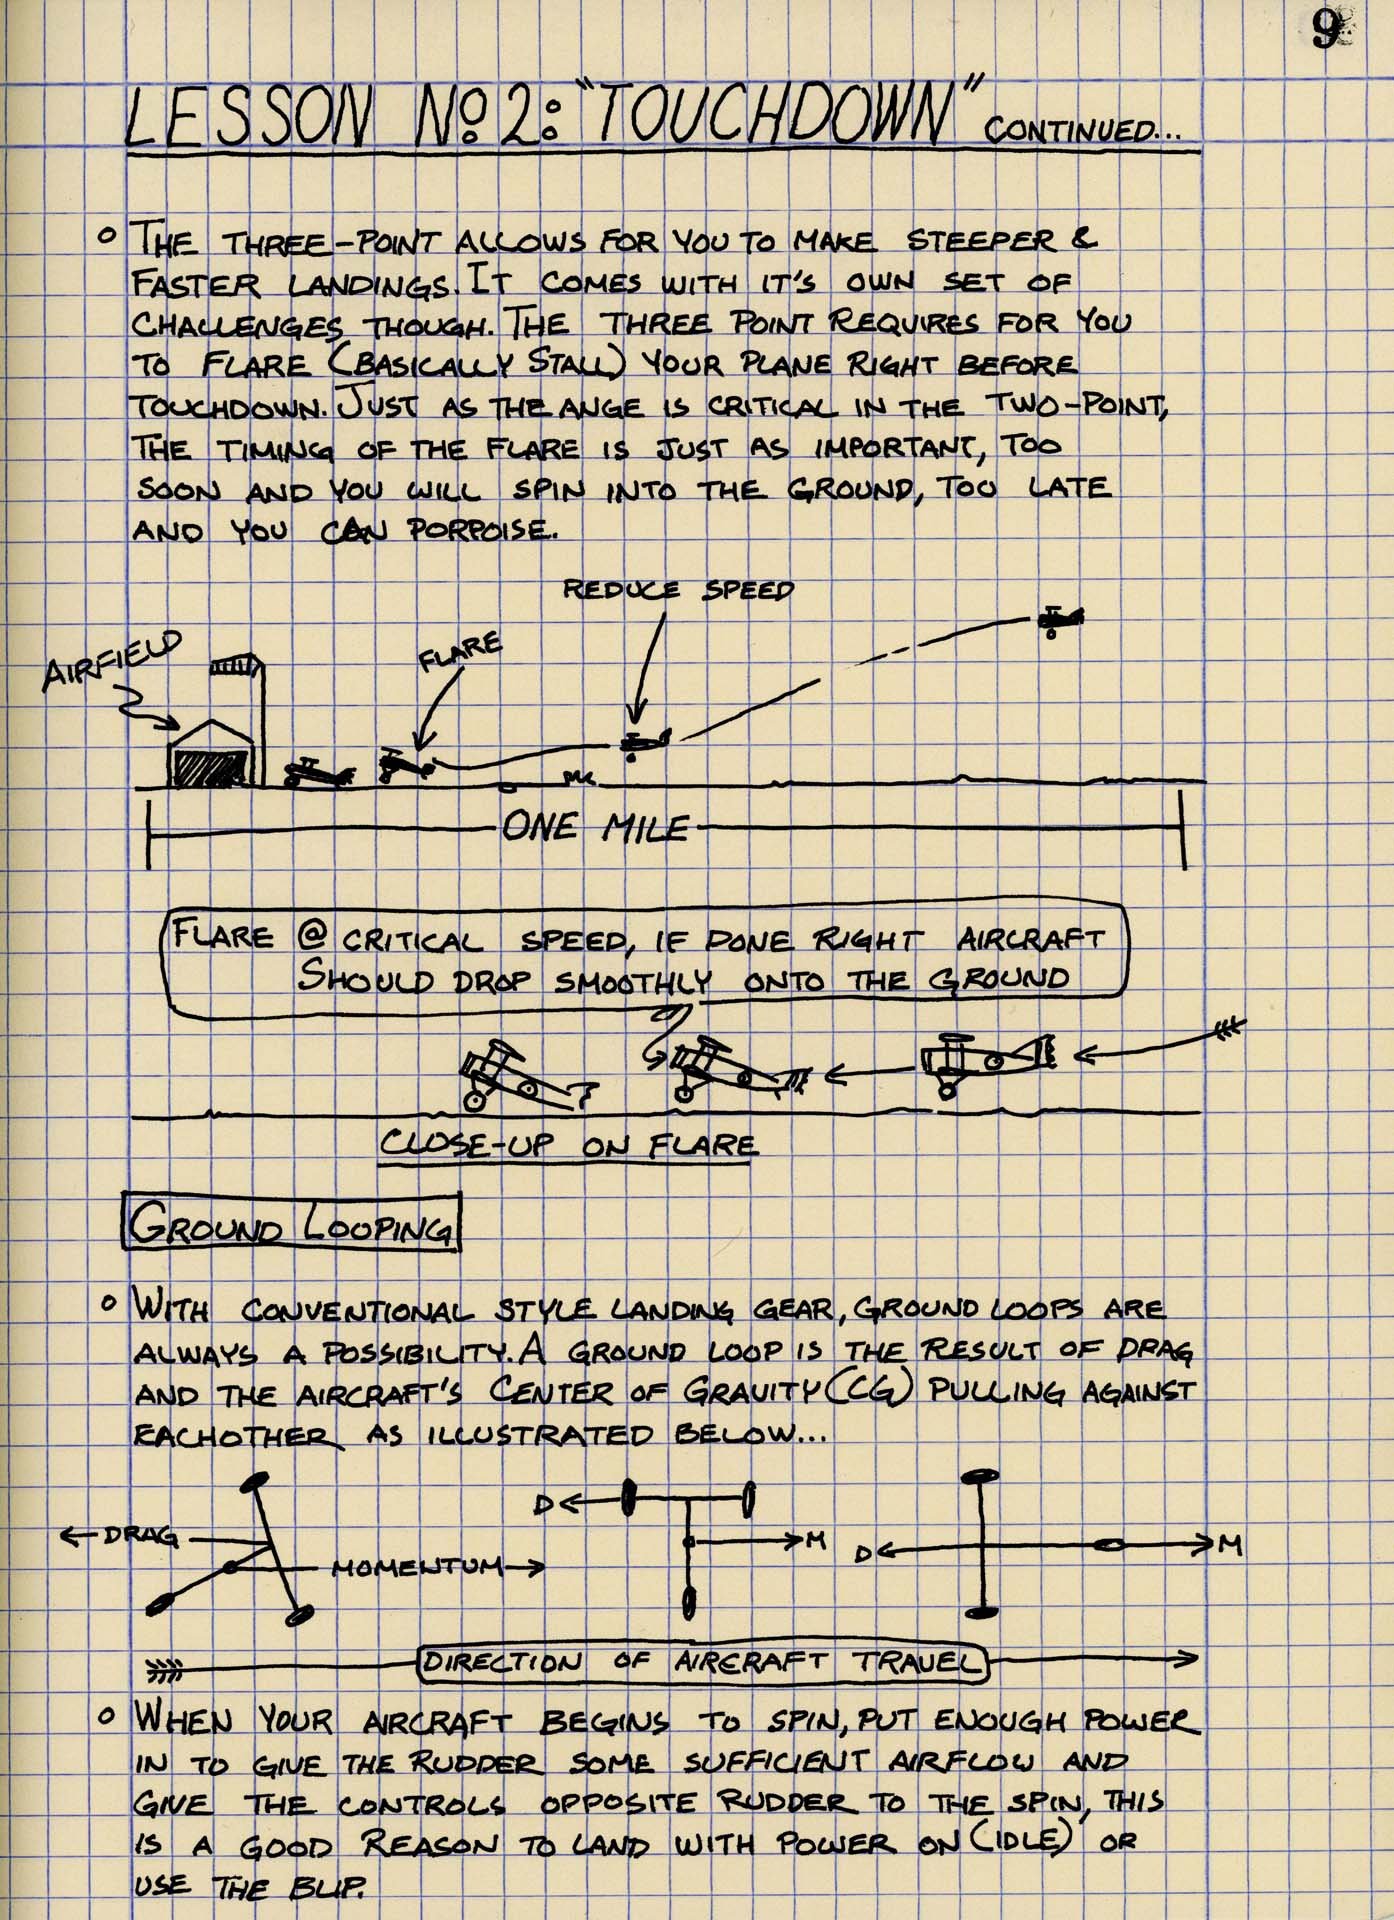 9
LESSON No 2: "TOUCHDOWN" CONTINUED...
o THE THREE-POINT ALLOWS FOR YOU TO MAKE STEEPER &
FASTER LANDINGS. IT COMES WITH IT'S OWN SET OF
CHALLENGES THOUGH. THE THREE POINT REQUIRES FOR YOU
TO FLARE (BASICALLY STALL) YOUR PLANE RIGHT BEFORE
TOUCHDOWN. JUST AS THE ANGE IS CRITICAL IN THE TWO-POINT,
THE TIMING OF THE FLARE IS JUST AS IMPORTANT, TOO
SOON AND YOU WILL SPIN INTO THE GROUND, TOO LATE
AND YOU CAN PORPOISE.
REDUCE SPEED
FLARE
AIRFIELD
ONE MILE
FLARE @ CRITICAL SPEED, IF DONE RIGHT AIRCRAFT
SHOULD DROP SMOOTHLY ONTO THE GROUND
CLOSE-UP ON FLARE
GROUND LOOPING
o WITH CONVENTIONAL STYLE LANDING GEAR, GROUND LOOPS ARE
ALWAYS A POSSIBILITY. A GROUND LOOP IS THE RESULT OF DRAG
AND THE AIRCRAFT'S CENTER OF GRAVITY (CG) PULLING AGAINST
EACHOTHER AS ILLUSTRATED BELOW...
DRAG
MOMENTUM
D
M
D
M
DIRECTION OF AIRCRAFT TRAVEL
o WHEN YOUR AIRCRAFT BEGINS TO SPIN, PUT ENOUGH POWER
IN TO GIVE THE RUDDER SOME SUFFICIENT AIRFLOW AND
GIVE THE CONTROLS OPPOSITE RUDDER TO THE SPIN, THIS
IS A GOOD REASON TO LAND WITH POWER ON (IDLE) OR
USE THE BLIP.